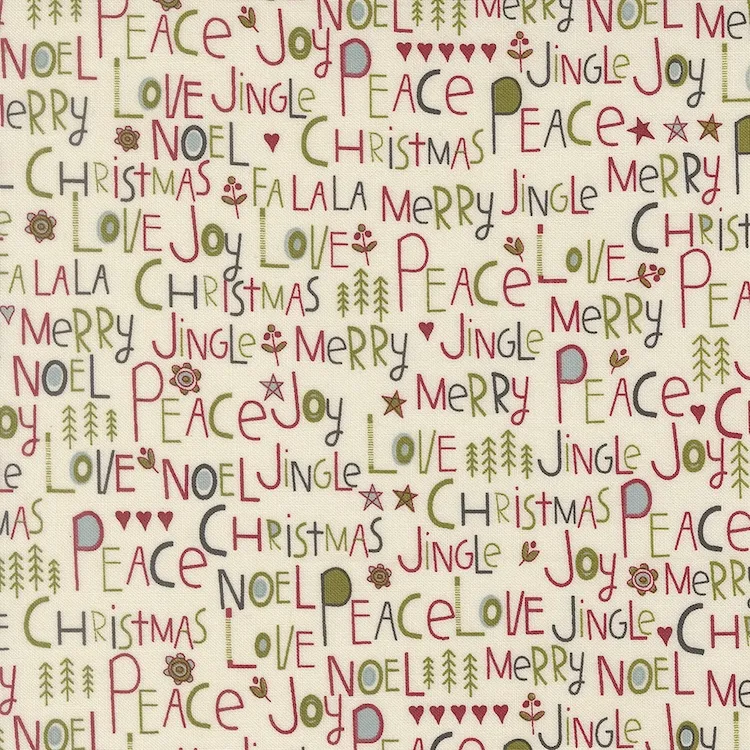 PEACE JOY MERRY NOEL MERRY
NOEL LOVE JINGLE PEACE JINGLE JOY
MERRY NOEL CHRISTMAS PEACE
CHRISTMAS FA LA LA MERRY JINGLE MERRY
LOVE JOY LOVE PEACE LOVE CHRIST
FA LA LA CHRISTMAS MERRY PEA
MERRY JINGLE MERRY JINGLE
NOEL PEACE JOY MERRY PEACE
OY LOVE NOEL JINGLE LOVE JINGLE JOY
MAS PEACE CHRISTMAS JINGLE CHRISTMAS PEACE
CHRISTMAS NOEL PEACE LOVE JOY MERRY
LOVE NOEL MERRY JINGLE CH
PEACE JOY NOEL MERRY NOEL
NOEL LOVE JINGLE PEACE JINGLE JOY